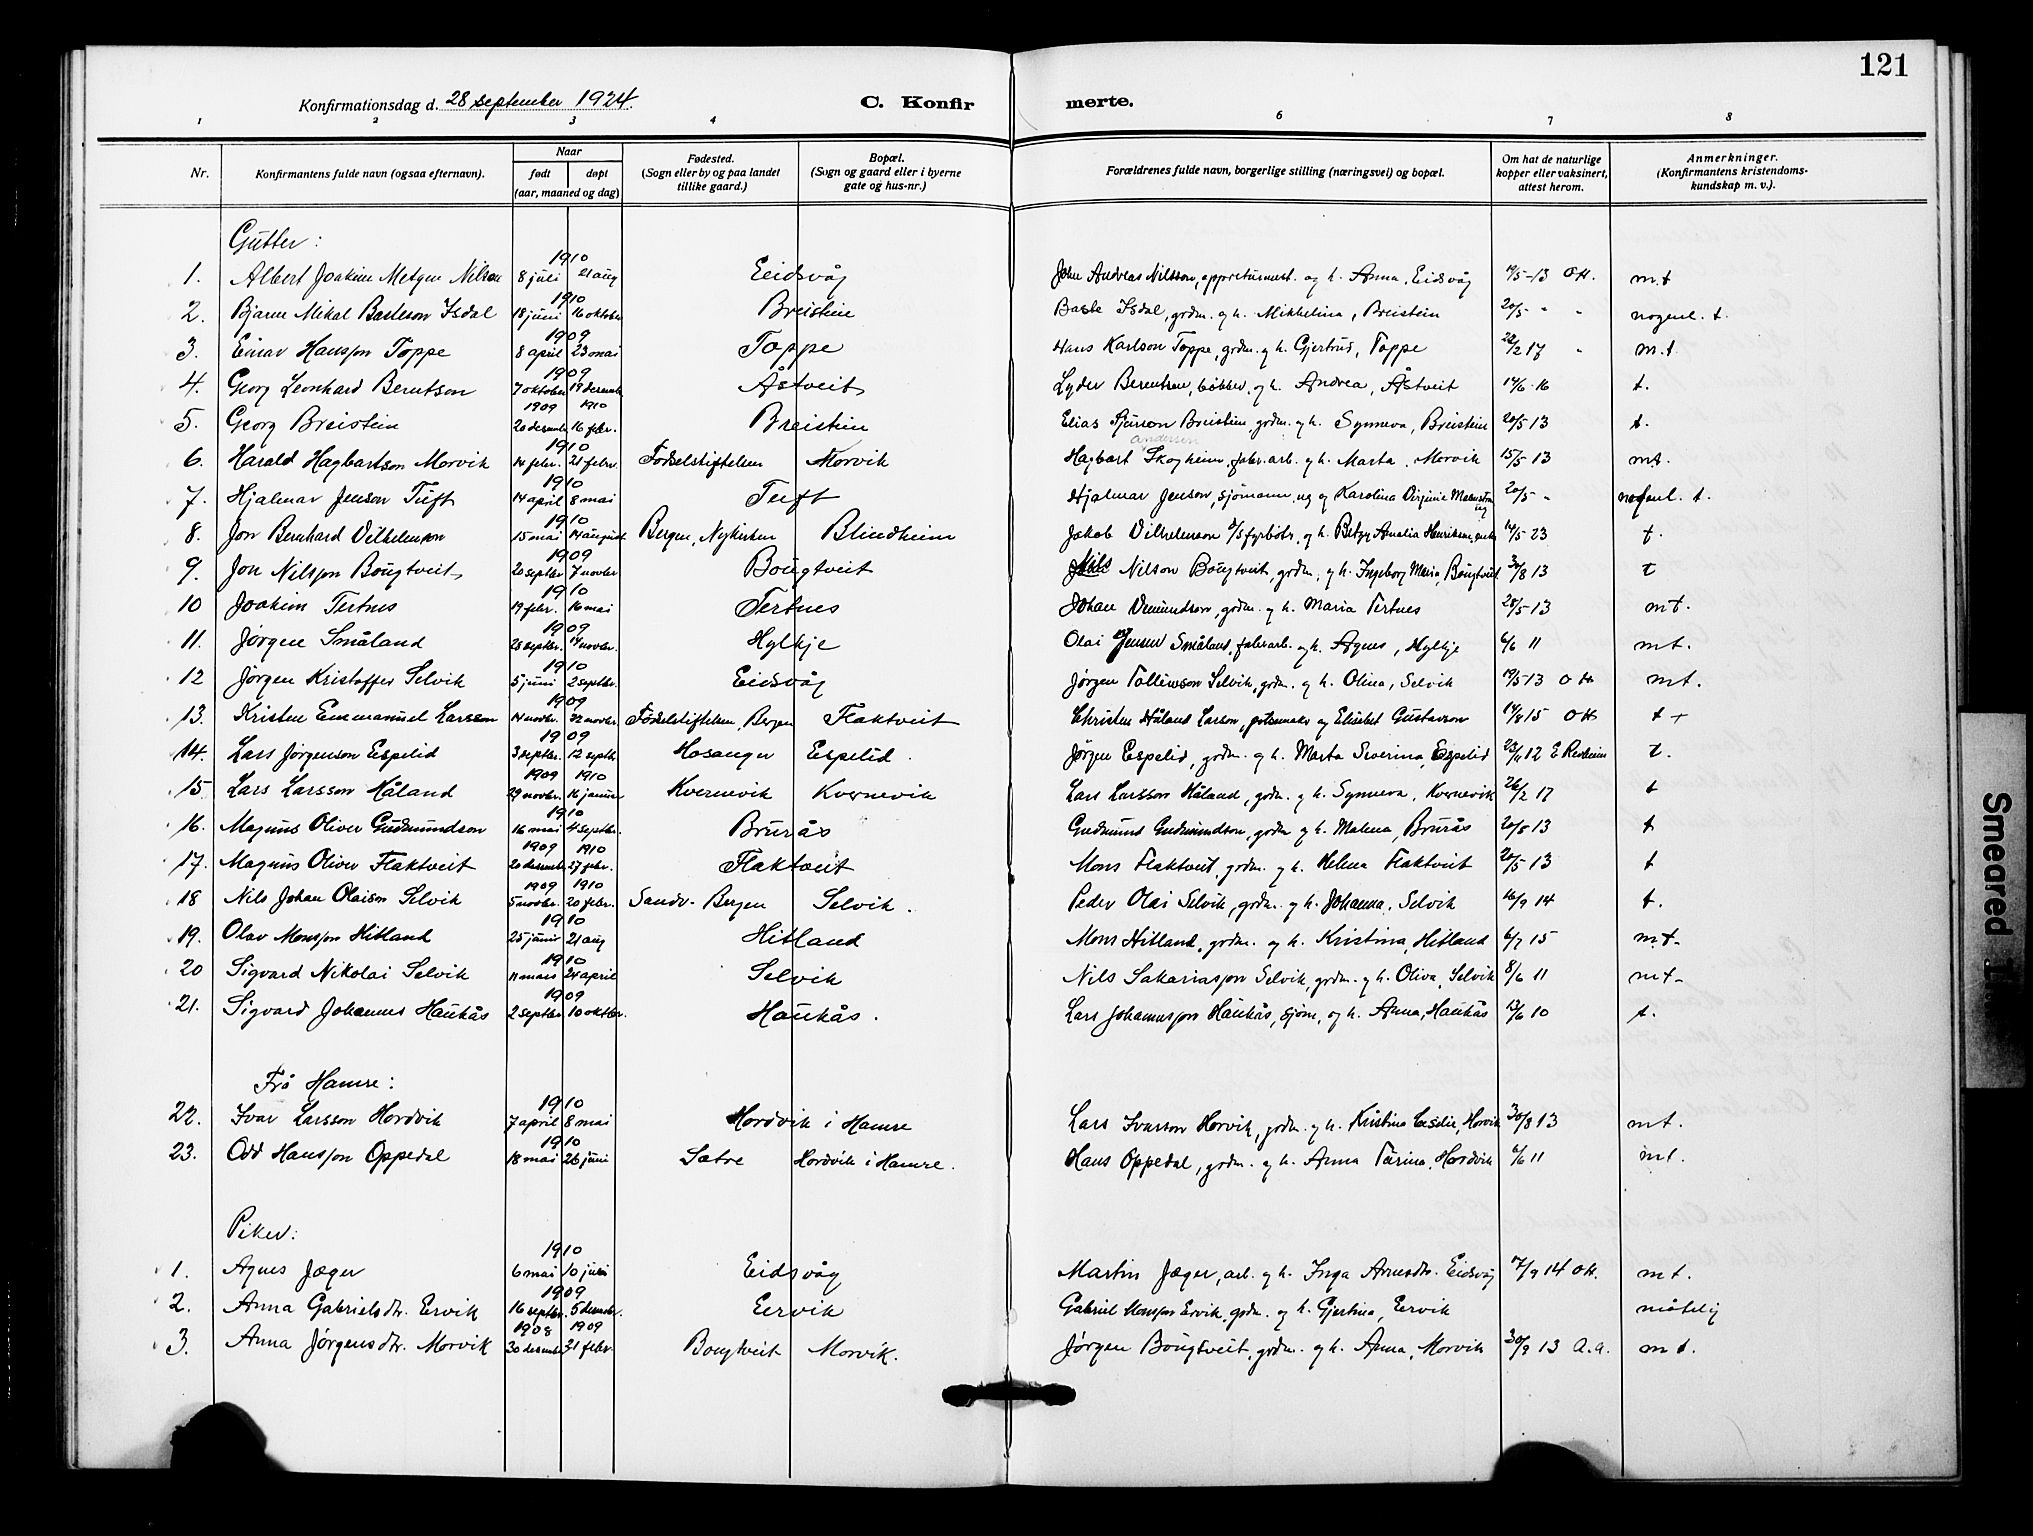 121
Konfirmationsdag d. 28 september 1924.
C. Konfirmerte.
1 2 3 4 6 7 8
Nr. Konfirmantens fulde navn (ogsaa efternavn). Naar født døpt (aar, maaned og dag) Fødested. (Sogn eller by og paa landet tillike gaard.) Bopæl. (Sogn og gaard eller i byerne gate og hus-nr.) Forældrenes fulde navn, borgerlige stilling (næringsvei) og bopæl. Om hat de naturlige kopper eller vaksinert, attest herom. Anmerkninger. (Konfirmantens kristendomskundskap m. v.).
Gutter:
1910
1. Albert Joakim Metger Nilsen 8 juli 21 aug Eidsvåg John Andreas Nilsson, og h. Anna, Eidsvåg 5-13 OH. m.t
1910
2. Bjarne Mikal Basteson Isdal 18 juni 16 oktober Breistein Baste Isdal, grdm. og h. Mikkelina, Breistein 20/5 " " nogenl. t.
1909
3. Einar Hansson Toppe 8 april 23 mai Toppe Hans Karlson Toppe, grdm. og h. Gjertrud, Toppe 22/2 17 " m.t.
1909
4. Georg Leonhard Berntson 7 oktober 19 desemb. Åstveit Lyder Berentsen, bøkker, og h. Andrea, Åstveit 14/6 16 t.
1909 1910
5. Georg Breistein 20 desemb. 16 febr. Breistein Elias Breistein, grdm. og h. Synneva, Breistein 20/5 13 t.
1910
6. Harald Hagbartson Morvik 14 febr. 21 febr. Fødselstiftelsen Morvik Hagbart Andersen Skogheim, fabr.arb. og h. Marta, Morvik 15/5 13 mt.
1910
7. Hjalmar Jenson Tuft 14 april 8 mai Tuft Hjalmar Jenson, sjømann, ug og Karolina Virginie ug 20/5 " nogenl. t.
1910
8. Jon Bernhard Vilhelmson 15 mai 14 august Bergen, Nykirken Blindheim Jakob Vilhelmson d/s fyrbøter, og h. Betzy Amalia Henriksen, 14/5 23 t.
1909
9. Jon Nilsson Bougtveit 20 septbr 7 novbr Bougtveit Nils Nilson Bougtveit, grdm. og h. Ingeborg Maria, Bougtveit 30/8 13 t
1910
10 Joakim Tertnes 19 febr. 16 mai Tertnes Johan Vemundson, grdm. og h. Maria Tertnes 20/5 13 mt.
1909
11. Jørgen Småland 28 septbr. 14 novbr. Hylkje Olai Jensen Småland, fabr.arb. og h. Agnes, Hylkje 6/6 11 mt.
1910
12 Jørgen Kristoffer Selvik 5 juni 2 septbr. Eidsvåg Jørgen Tollevson Selvik, grdm. og h. Olina, Selvik 19/5-13 OH mt.
1909
13. Kristen Emmanuel Larsson 14 novbr. 22 novbr. Fødselstiftelsen, Bergen Flaktveit Christen Håland Larson, og Elisebet Gustavson 14/8 15 OH t +
1909
14. Lars Jørgenson Espelid 3 septbr. 12 septb. Hosanger Espelid. Jørgen Espelid, grdm. og h. Marta Severina, Espelid 23/11 12 t.
1909 1910
15. Lars Larsson Håland 29 novbr. 16 januar Kvernevik Kvernevik Lars Larsson Håland, grdm. og h. Synneva, Kvernevik 26/2 17 t
1910
16. Magnus Oliver Gudmundson 16 mai 4 septbr. Brurås Gudmund Gudmundson, grdm og h. Malena, Brurås 20/5 13 t
1909 1910
17. Magnus Oliver Flaktveit 20 desemb. 27 febr. Flaktveit Mons Flaktveit, grdm. og h. Helena Flaktveit 20/5 13 t
1909 1910
18 Nils Johan Olaison Selvik 5 novbr. 20 febr. Sandv. Bergen Selvik. Peder Olai Selvik, grdm. og h. Johanna, Selvik 16/9 14 t.
1910
19. Olav Monsson Hitland 25 juni 21 aug Hitland Mons Hitland, grdm. og h. Kristina, Hitland 6/7 15 mt.
1910
20 Sigvard Nikolai Selvik 11 mars 24 april Selvik Nils Sakariasson Selvik, grdm. og h. Oliva, Selvik 8/6 11 mt.
1909
21. Sigvard Johannes Haukås 2 septbr. 10 oktbr. Haukås. Lars Johannesson Haukås, sjøm, og h. Anna, Haukås 13/6 10 t.
Frå Hamre:
1910
22. Ivar Larsson Hordvik 7 april 8 mai Hordvik i Hamre Lars Ivarson Horvik, grdm. og h. Kristina Cesilie, Horvik 30/8 13 mt.
1910
23. Odd Hansson Oppedal 18 mai 26 juni Sætre Hordvik i Hamre. Hans Oppedal, grdm. og h. Anna Tarina, Hordvik 6/6 11 mt.
Piker:
1910
1. Agnes Jæger 6 mai 10 juli Eidsvåg Martin Jæger, arb. og h. Inga Arnesdtr. Eidsvåg 17/9 14 OH. mt.
1909
2. Anna Gabrielsdtr. Ervik 16 septbr. 5 desembr. Eervik Gabriel Monsson Ervik, grdm. og h. Gjertina, Eervik måtelig
1908 1909
3. Anna Jørgensdtr. Morvik 30 desemb. 21 febr. Bougtveit Morvik. Jørgen Bougtveit, grdm. og h. Anna, Morvik 30/9 13 a.a. mt.
Smeared